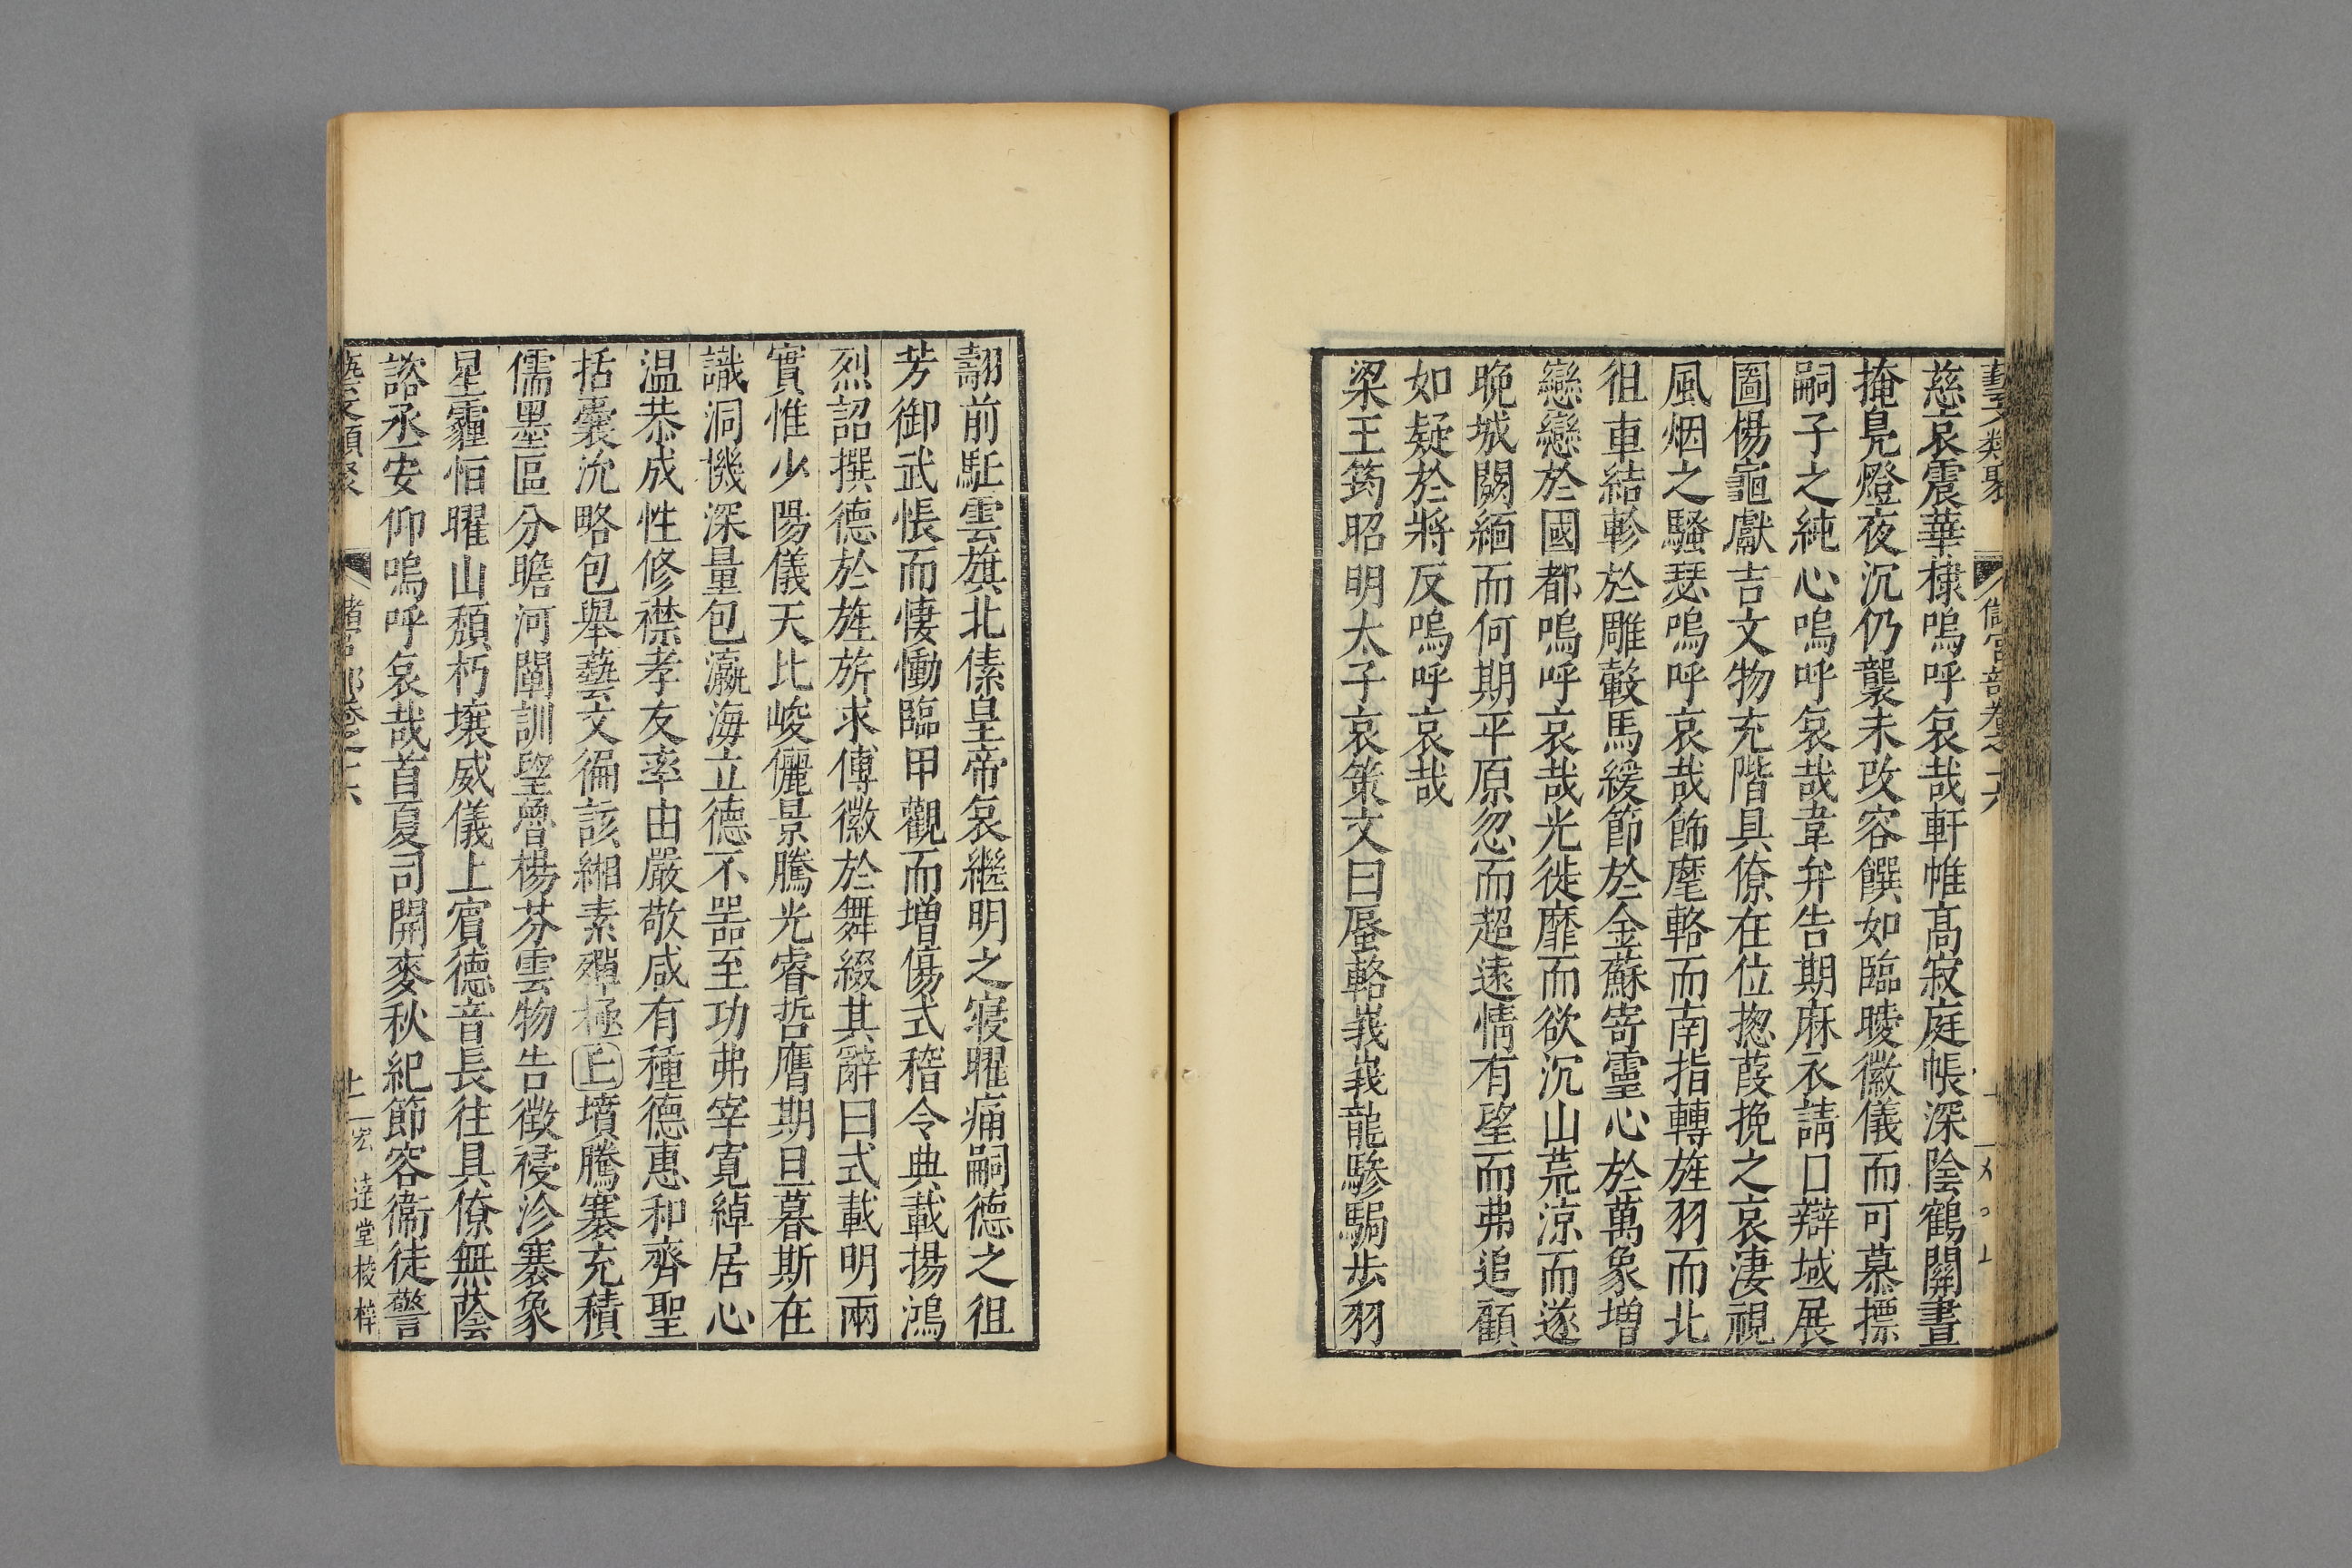 藝文類聚 儲宮部卷之十六
慈哀震華棣嗚呼哀哉軒帷高寂庭帳深陰鶴關晝
掩鳬燈夜沉仍襲未改容饌如臨曖徽儀而可慕摽
嗣子之純心嗚呼哀哉韋弁告期麻衣請日辯域展
圖楊龜獻吉文物充階具僚在位揔葭挽之哀淒視
風烟之騷瑟嗚呼哀哉飾麾輅而南指轉旌羽而北
徂車結軫於雕轂馬緩節於金蘇寄靈心於萬象增
戀戀於國都嗚呼哀哉光徙靡而欲沉山荒涼而遂
晚城闕緬而何期平原忽而超遠情有望而弗追顧
如疑於將反嗚呼哀哉
梁王筠昭明太子哀策文曰蜃輅峩峩龍驂跼步羽
翿前馳雲旗北傃皇帝哀繼明之寢曜痛嗣德之徂
芳御武帳而悽慟臨甲觀而增傷式稽令典載揚鴻
烈詔撰德於旌旂永傳徽於舞綴其辭曰式載明兩
實惟少陽儀天比峻儷景騰光睿哲膺期旦暮斯在
識洞機深量包瀛海立德不器至功弗宰寬綽居心
温恭成性修襟孝友率由嚴敬咸有種德惠和齊聖
括囊沇略包舉藝文徧該緗素殫極丘墳騰褰充積
儒墨區分瞻河闡訓望魯楊芬雲物告徵祲沴褰象
星霾恒曜山頹朽壤威儀上賓德音長往具僚無蔭
諮承安仰嗚呼哀哉首夏司開麥秋紀節容衛徒警
藝文類聚 儲宮部卷之十六 十一 宏達堂校梓